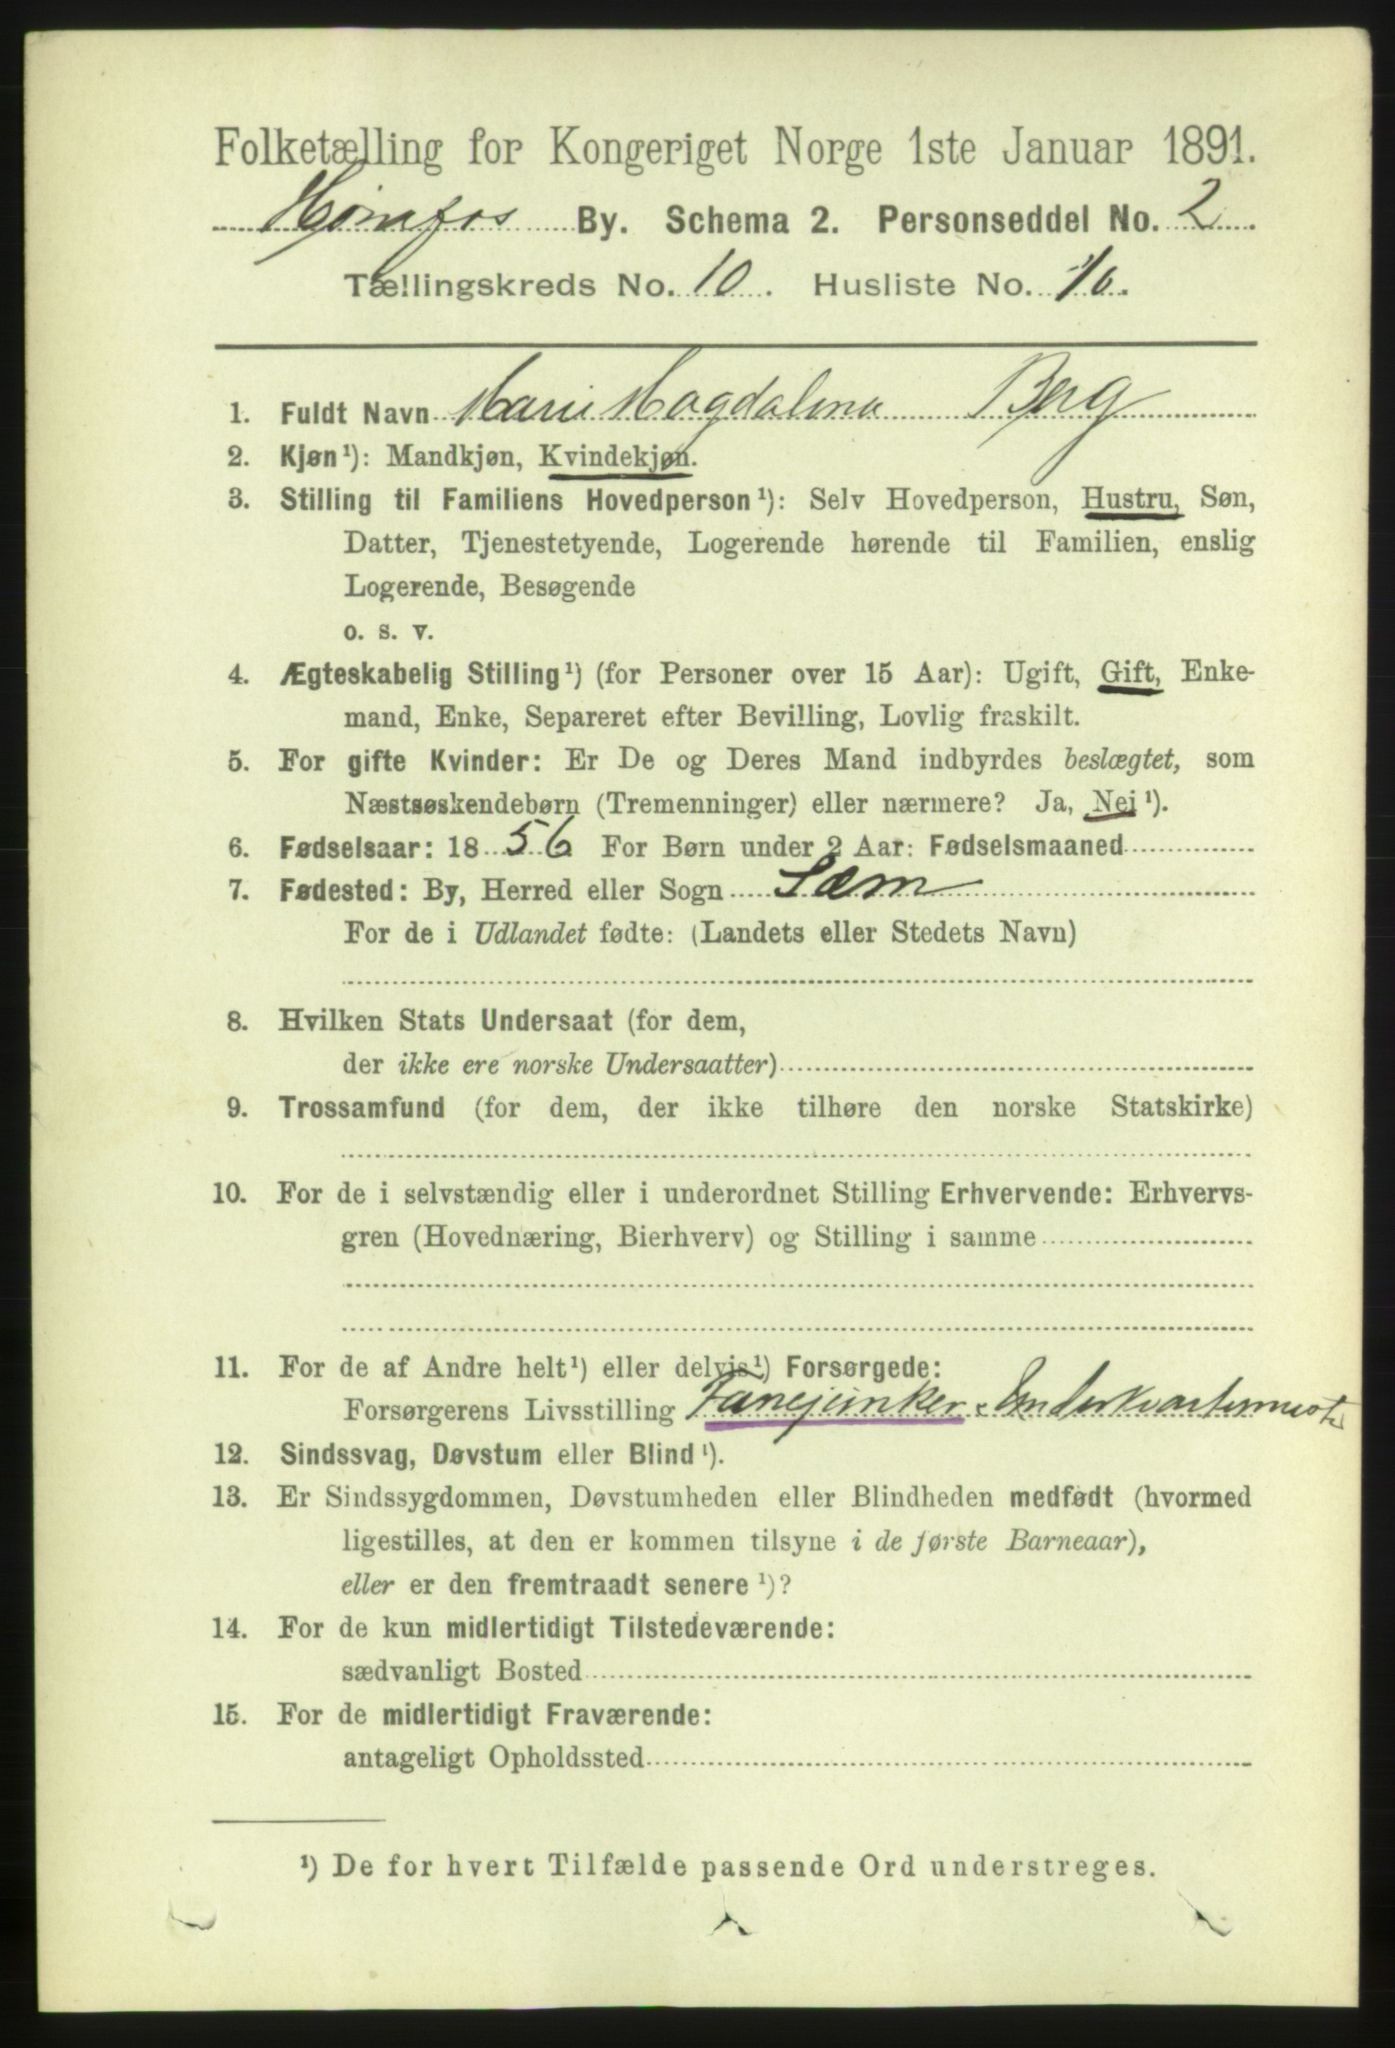 Folketælling for Kongeriget Norge 1ste Januar 1891.
Hønefos By. Schema 2. Personseddel No. 2.
Tællingskreds No. 10. Husliste No. 10.
1. Fuldt Navn Marie Magdalena Berg
2. Kjøn¹): Mandkjøn, Kvindekjøn.
3. Stilling til Familiens Hovedperson¹): Selv Hovedperson, Hustru, Søn,
Datter, Tjenestetyende, Logerende hørende til Familien, enslig
Logerende, Besøgende
o. s. v.
4. Ægteskabelig Stilling¹) (for Personer over 15 Aar): Ugift, Gift, Enke-
mand, Enke, Separeret efter Bevilling, Lovlig fraskilt.
5. For gifte Kvinder: Er De og Deres Mand indbyrdes beslægtet, som
Næstsøskendebørn (Tremenninger) eller nærmere? Ja, Nej¹).
6. Fødselsaar: 1856 For Børn under 2 Aar: Fødselsmaaned
7. Fødested: By, Herred eller Sogn Sæm
For de i Udlandet fødte: (Landets eller Stedets Navn)
8. Hvilken Stats Undersaat (for dem,
der ikke ere norske Undersaatter)
9. Trossamfund (for dem, der ikke tilhøre den norske Statskirke)
10. For de i selvstændig eller i underordnet Stilling Erhvervende: Erhvervs-
gren (Hovednæring, Bierhverv) og Stilling i samme
11. For de af Andre helt¹) eller delvis¹) Forsørgede:
Forsørgerens Livsstilling Fanejunker & Underkvartermester
12. Sindssvag, Døvstum eller Blind¹).
13. Er Sindssygdommen, Døvstumheden eller Blindheden medfødt (hvormed
ligestilles, at den er kommen tilsyne i de første Barneaar),
eller er den fremtraadt senere¹)?
14. For de kun midlertidigt Tilstedeværende:
sædvanligt Bosted
15. For de midlertidigt Fraværende:
antageligt Opholdssted
¹) De for hvert Tilfælde passende Ord understreges.